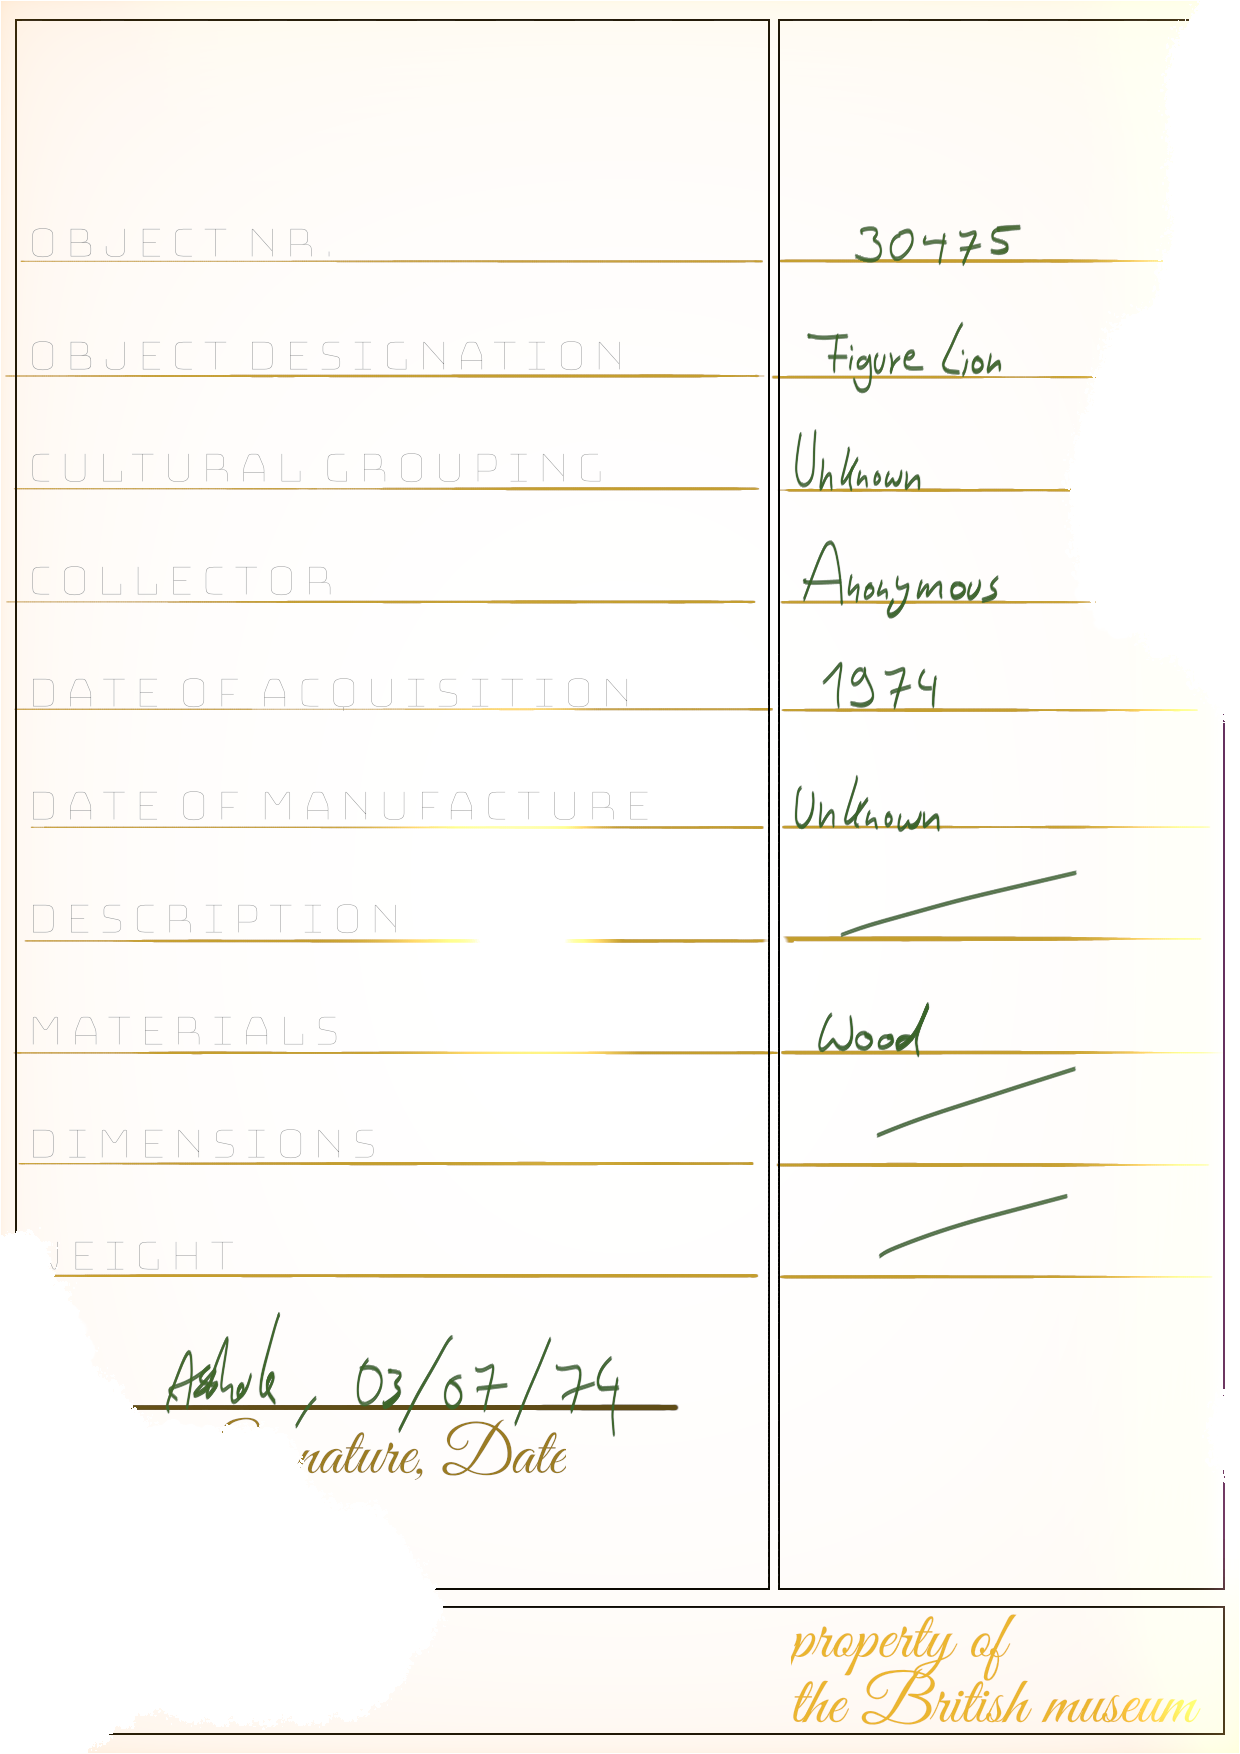 OBJECT NR. 30475
OBJECT DESIGNATION Figure Lion
CULTURAL GROUPING Unknown
COLLECTOR Anonymous
DATE OF ACQUISITION 1974
DATE OF MANUFACTURE Unknown
DESCRIPTION
MATERIALS Wood
DIMENSIONS
WEIGHT
, 03/07/74
nature, Date
property of
the British museum